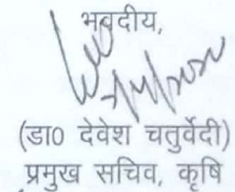 भवदीय,
(डा0 देवेश चतुर्वेदी)
प्रमुख सचिव, कृषि